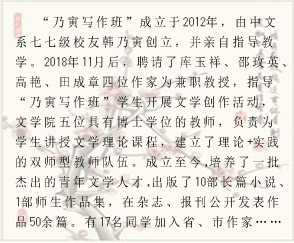 “乃寅写作班”成立于2012年，由中文
系七七级校友韩乃寅创立，并亲自指导教
学。2018年11月后，聘请了库玉祥、邵玫英、
高艳、田成章四位作家为兼职教授，指导
“乃寅写作班”学生开展文学创作活动，
文学院五位具有博士学位的教师，负责为
学生讲授文学理论课程，建立了理论+实践
的双师型教师队伍。成立至今，培养了一批
杰出的青年文学人才，出版了10部长篇小说、
1部师生作品集，在杂志、报刊公开发表作
品50余篇。有17名同学加入省、市作家……